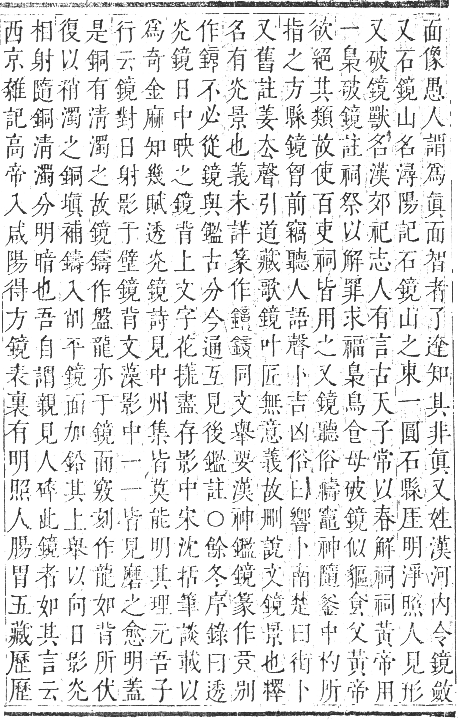 面像愚人謂爲眞面智者了達知其非眞又姓漢河內令鏡斂
又石鏡山名潯陽記石鏡山之東一圓石縣厓明淨照人見形
又破鏡獸名漢郊祀志人有言古天子常以春解祠祠黃帝用
一梟破鏡註祠祭以解罪求福梟鳥食母破鏡似貙食父黃帝
欲絕其類故使百吏祠皆用之又鏡聽俗禱竈神隨釜中杓所
指之方縣鏡胷前竊聽人語聲卜吉凶俗曰響卜南楚曰街卜
又舊註姜去聲引道藏歌鏡叶匠無意義故刪說文鏡景也釋
名有光景也義未詳篆作同文舉要漢神鑑鏡篆作竟別
作不必從鏡與鑑古分今通互見後鑑註○餘冬序錄曰透
光鏡日中映之鏡背上文字花㨾盡存影中宋沈括筆談載以
爲奇金麻知幾賦透光鏡詩見中州集皆莫能明其理元吾子
行云鏡對日射影于壁鏡背文藻影中一一皆見磨之愈明蓋
是銅有淸濁之故鏡鑄作盤龍亦于鏡面竅刻作龍如背所伏
復以稍濁之銅塡補鑄入削平鏡面加鉛其上舉以向日影光
相射隨銅淸濁分明暗也吾自謂親見人碎此鏡者如其言云
西京雜記高帝入咸陽得方鏡表裏有明照人腸胃五藏歷歷